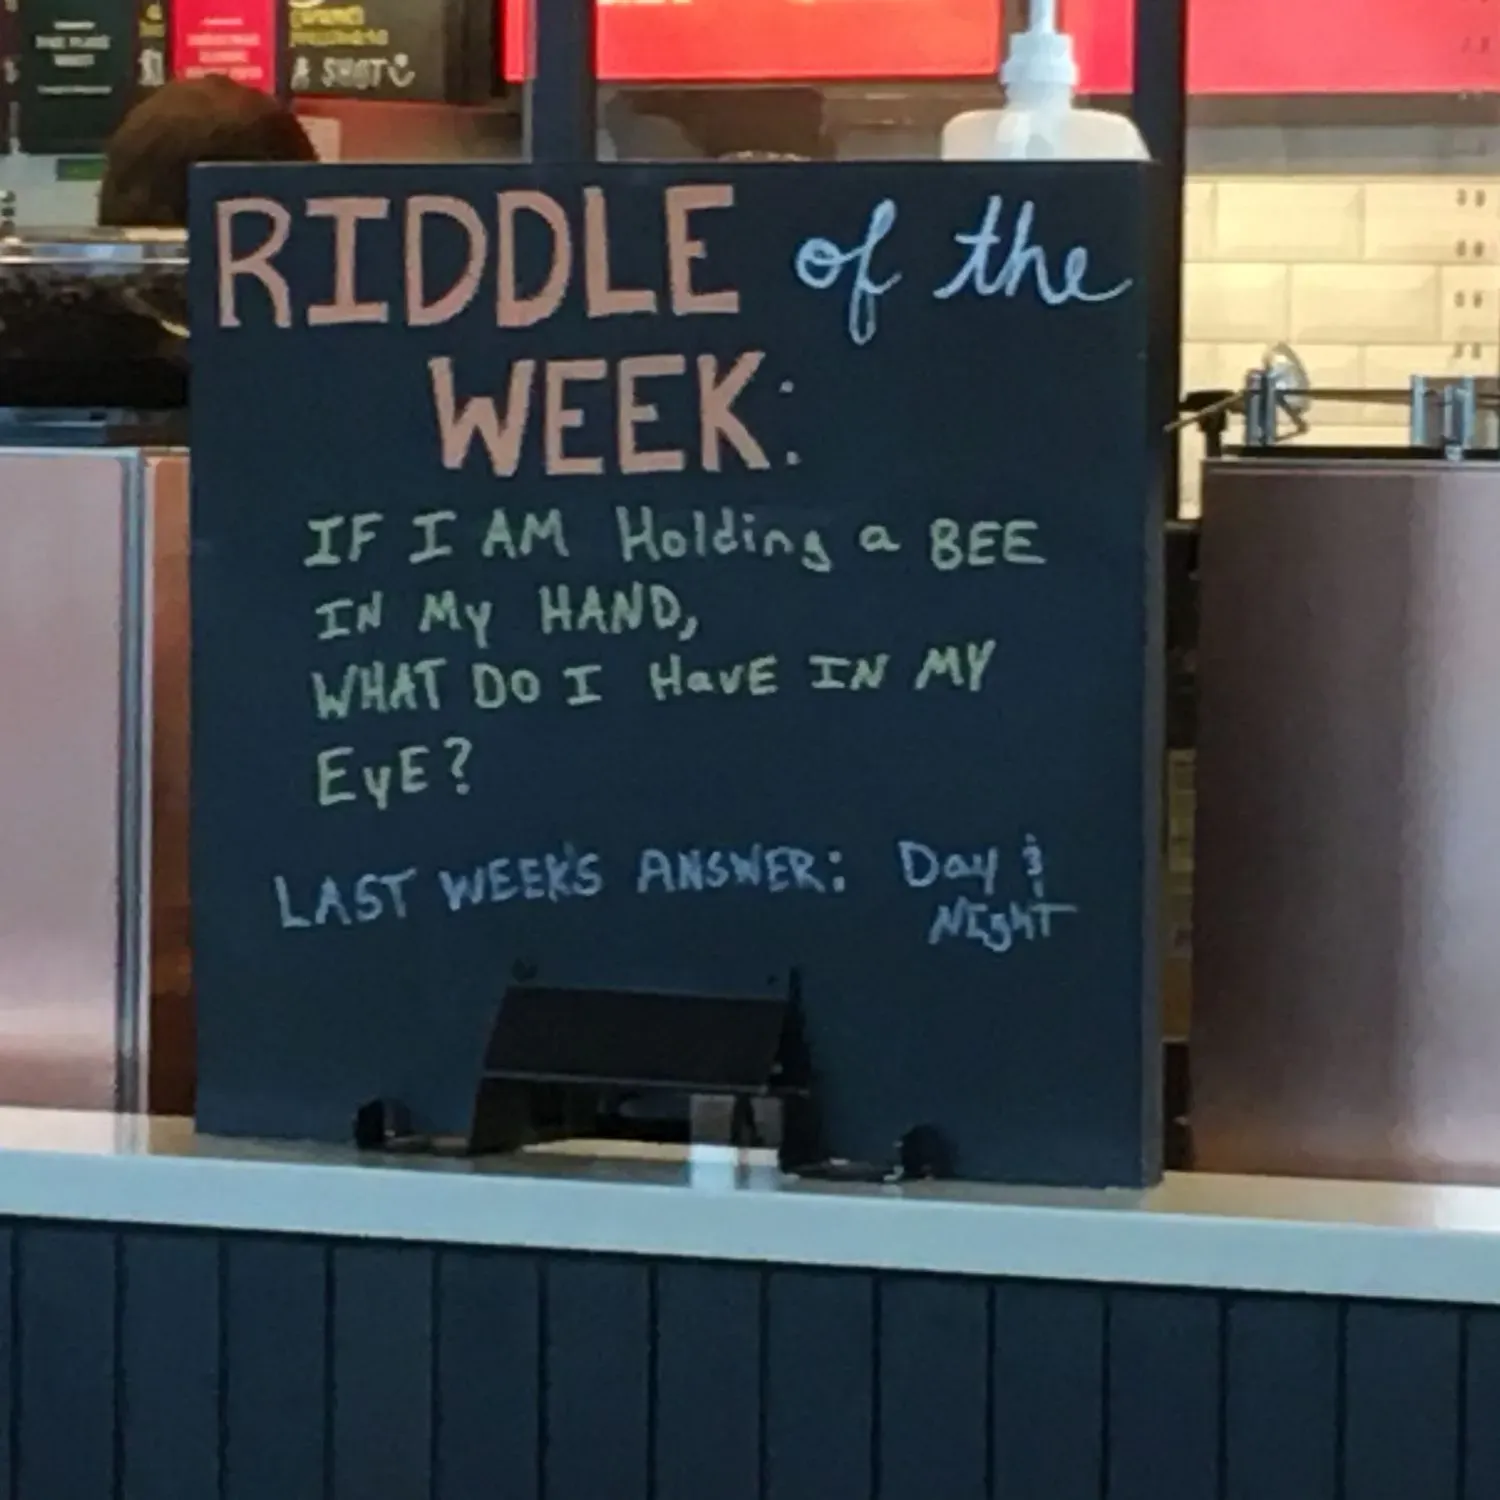 A SHOT
RIDDLE of the
WEEK:
IF I AM Holding a BEE
IN My HAND,
WHAT DO I HavE IN MY
EyE?
LAST WEEK'S ANSWER: Day &
NIghT